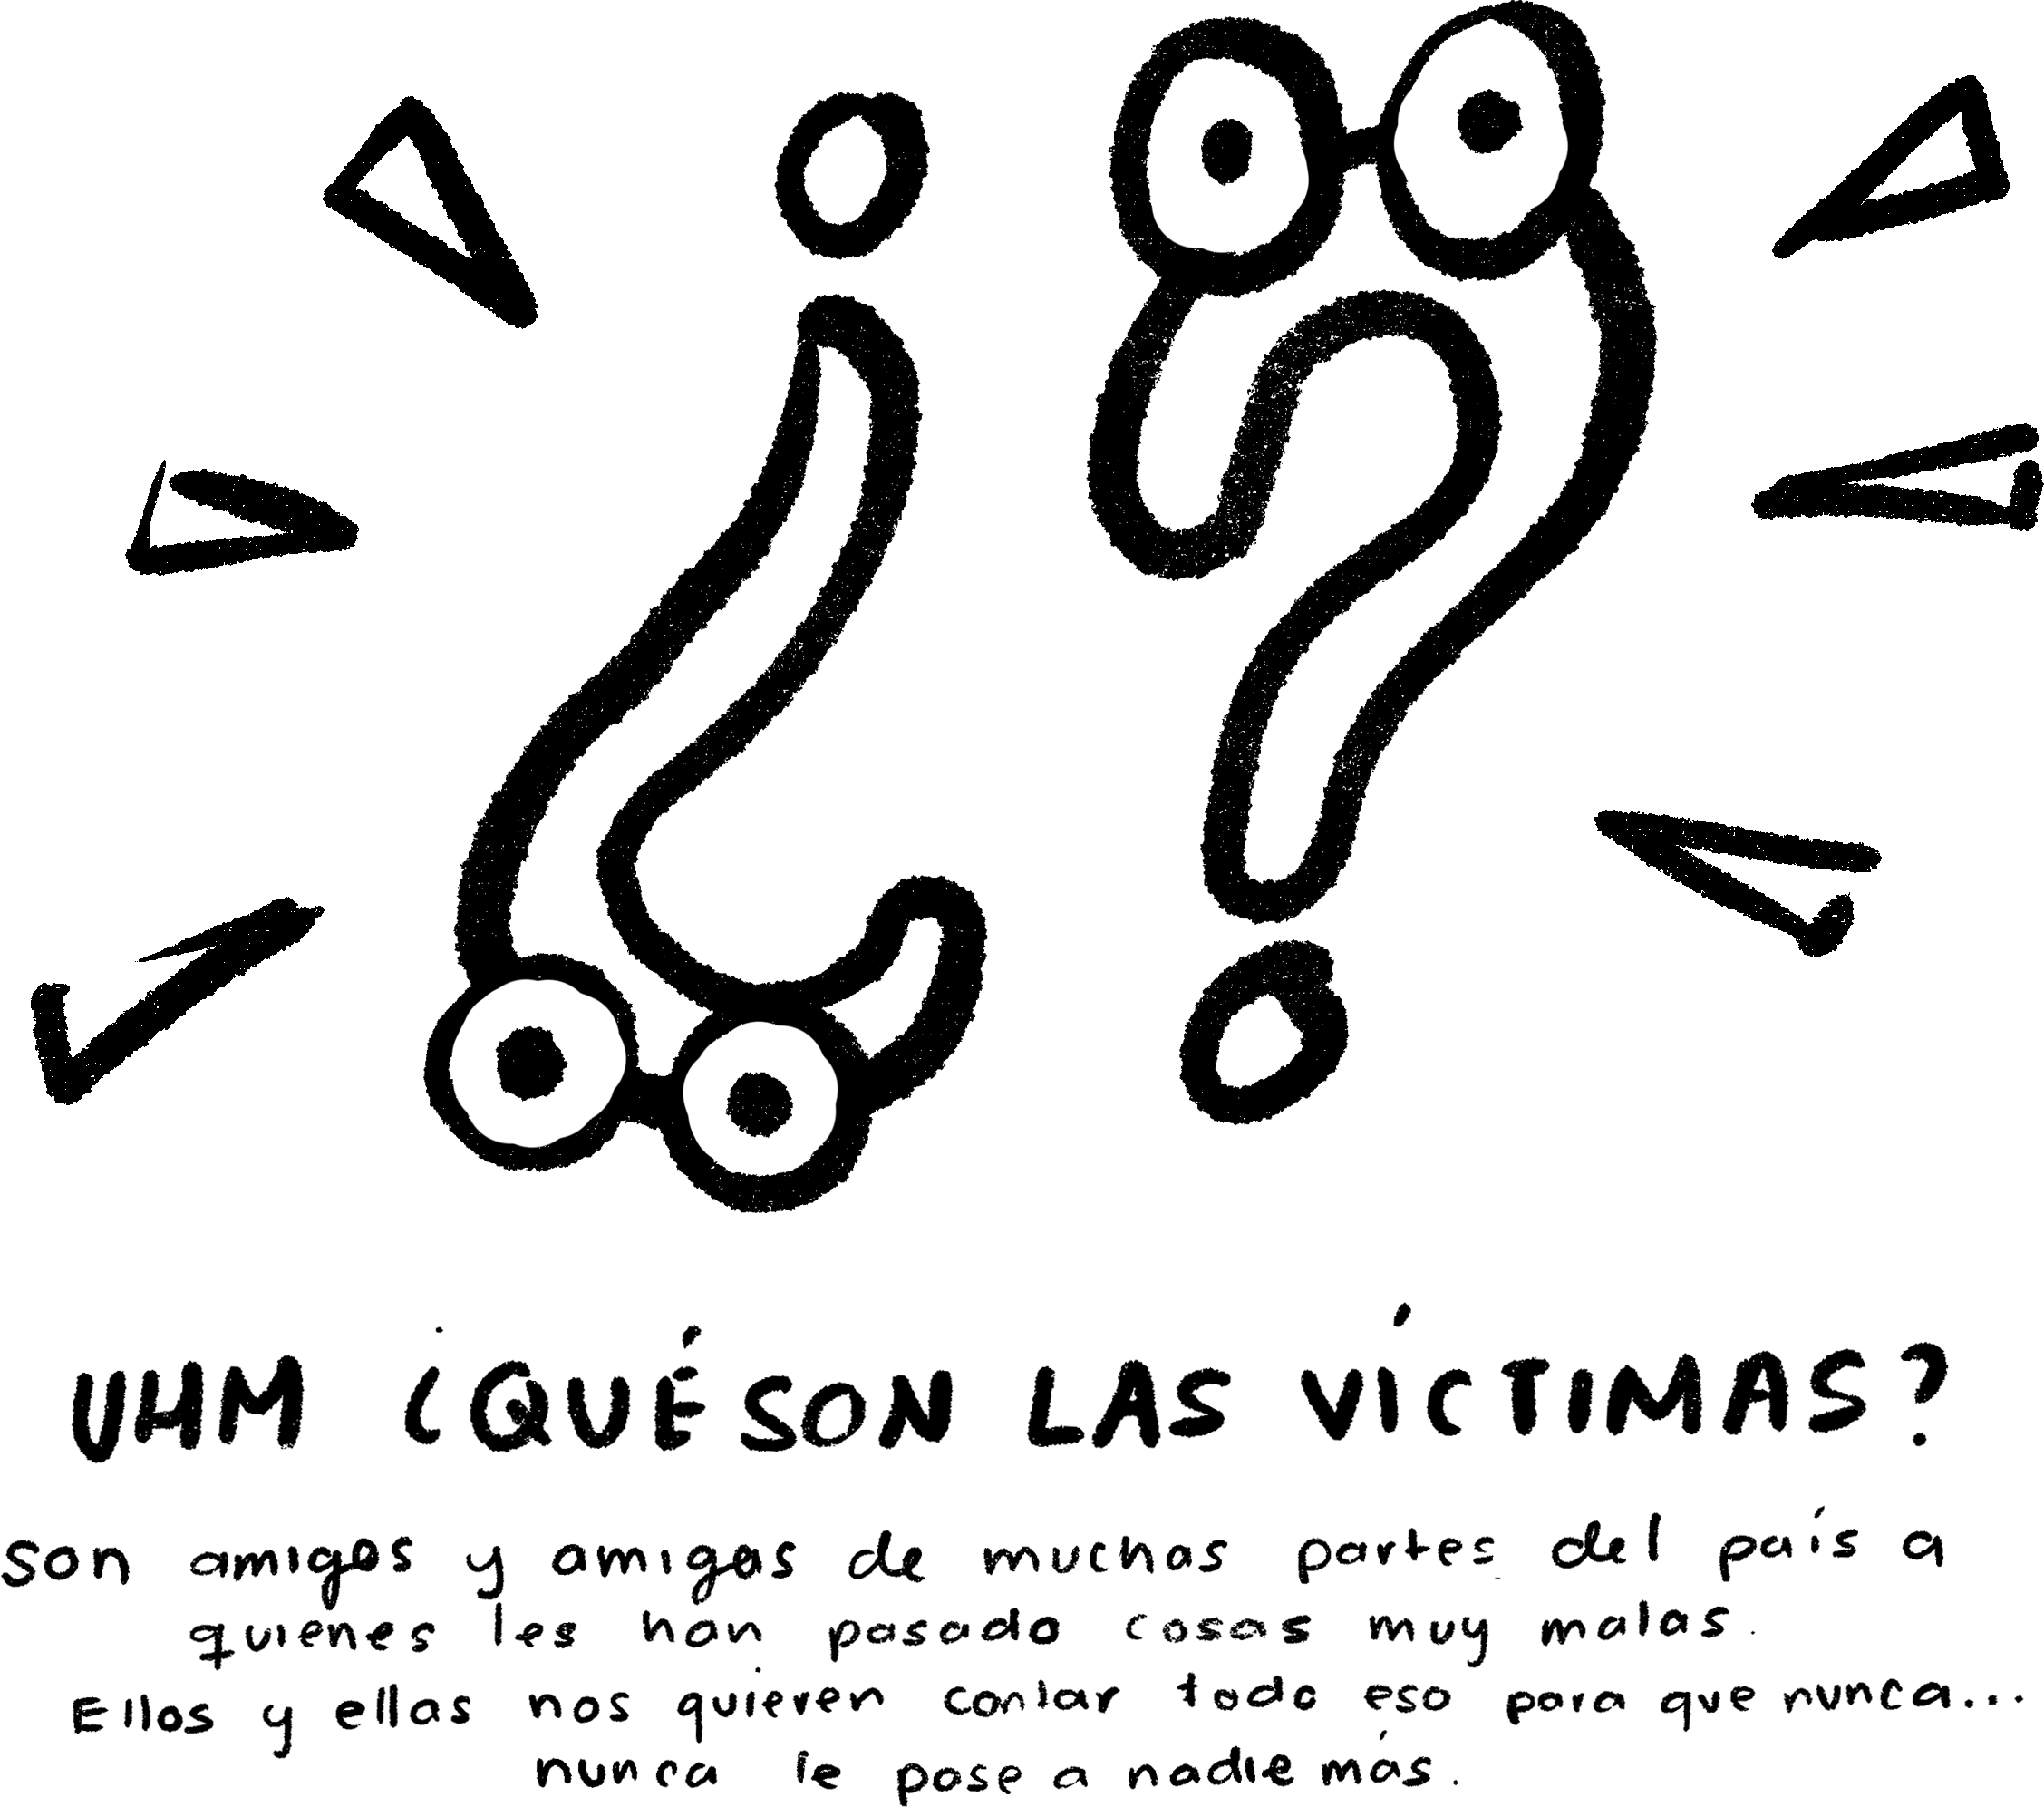 ¿?
UHM ¿QUÉ SON LAS VÍCTIMAS?
Son amigos y amigas de muchas partes del país a
quienes les han pasado cosas muy malas.
Ellos y ellas nos quieren contar todo eso para que nunca...
nunca le pase a nadie más.